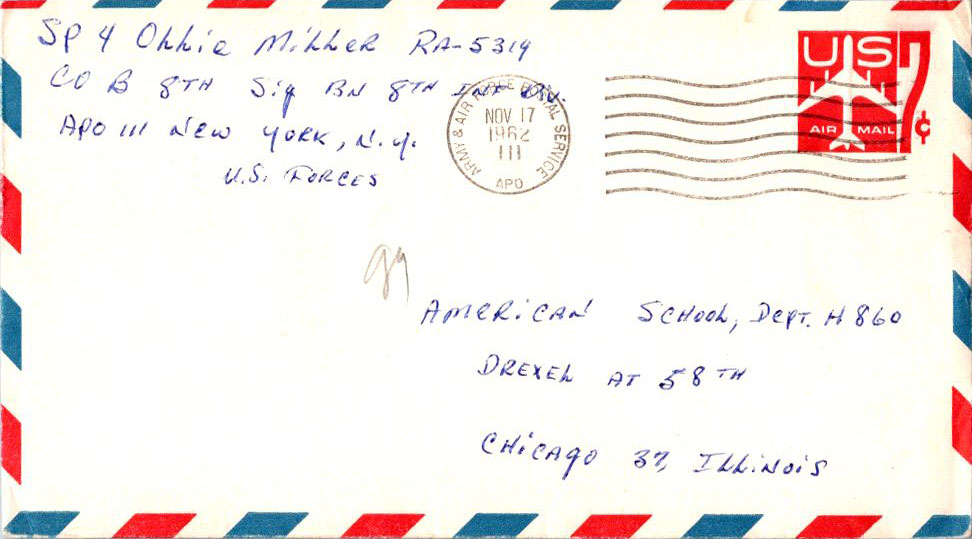 SP 4 Ollie Miller RA-5314
CO B 8TH Sig BN 8TH INF DIV.
APO 111 NEW YORK, N.Y.
U.S. FORCES
ARMY & AIR FORCE POSTAL SERVICE
NOV 17
1962
111
APO
US 7¢
AIR MAIL
AMERICAN SCHOOL, DEPT. H860
DREXEL AT 58TH
CHICAGO 37, ILLINOIS